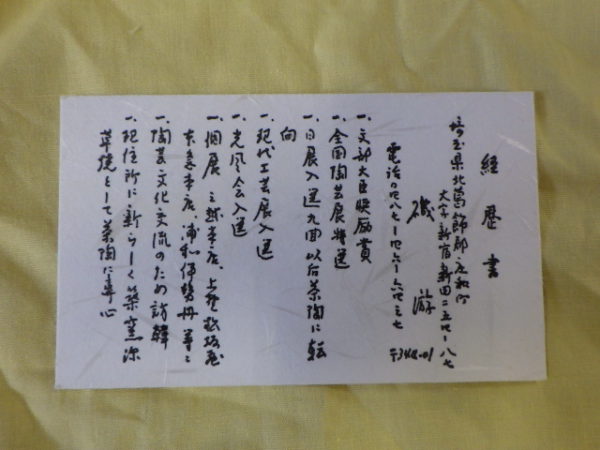 経歴書
埼玉県北葛飾郡庄和町
大字新宿新田二五四ー八七
磯 游
〒344-01
電話〇四八七ー四六ー六四三七
一、文部大臣奨励賞
一、全国陶芸展特選
一、日展入選九回以后茶陶に転
向
一、現代工芸展入選
一、光風会入選
一、個展 三越本店、上野松坂屋
東急本店、浦和伊勢丹等々
一、陶芸文化交流のため訪韓
一、現住所に新らしく築窯
草焼として茶陶に専心